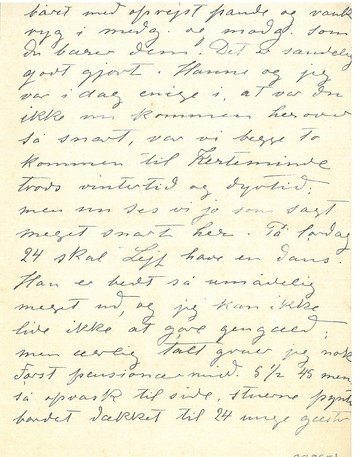 båret med oprejst pande og rank
ryg i medg. og modg. som
du bærer dem! Det er sandelig
godt gjort. Hanne og jeg
var i dag enige i, at var du
ikke nu kommen herover
så snart, var vi begge to
kommen til Kerteminde
trods vintertid og dyrtid;
men nu ses vi jo som sagt
meget snart her. På lørdag
24 skal Leif have en dans.
Han er bedt så umådelig
meget ud, og jeg kan ikke
lide ikke at gøre gengæld;
men ærlig talt gruer jeg nok
Først pensionærmid. 5 1/2 45 men.
så opvask til side, stuerne pynte
bordet dækket til 24 unge gæster